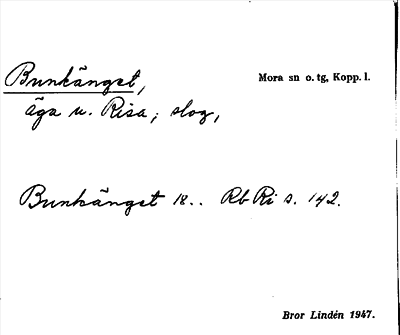 Bunkängst,
Mora sn o. tg, Kopp. l.
äga u. Risa; slog,
Bunkängst 18.. Rb Ri s. 142.
Bror Lindén 1947.